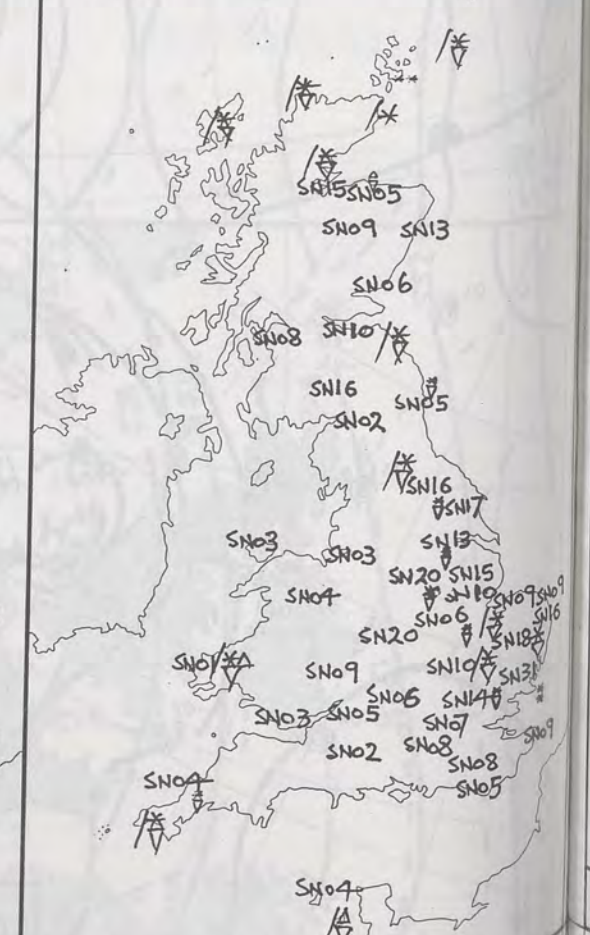 SN15 SN05
SN09 SN13
SN06
SN08 SN10
SN16 SN05
SN02
SN16
SN17
SN03 SN13
SN03
SN20 SN15
SN04 SN10 SN09 SN09
SN06 SN16
SN20 SN18
SN01 SN09 SN10 SN31
SN06 SN14
SN03 SN05 SN07 SN09
SN02 SN08
SN08
SN04 SN05
SN04